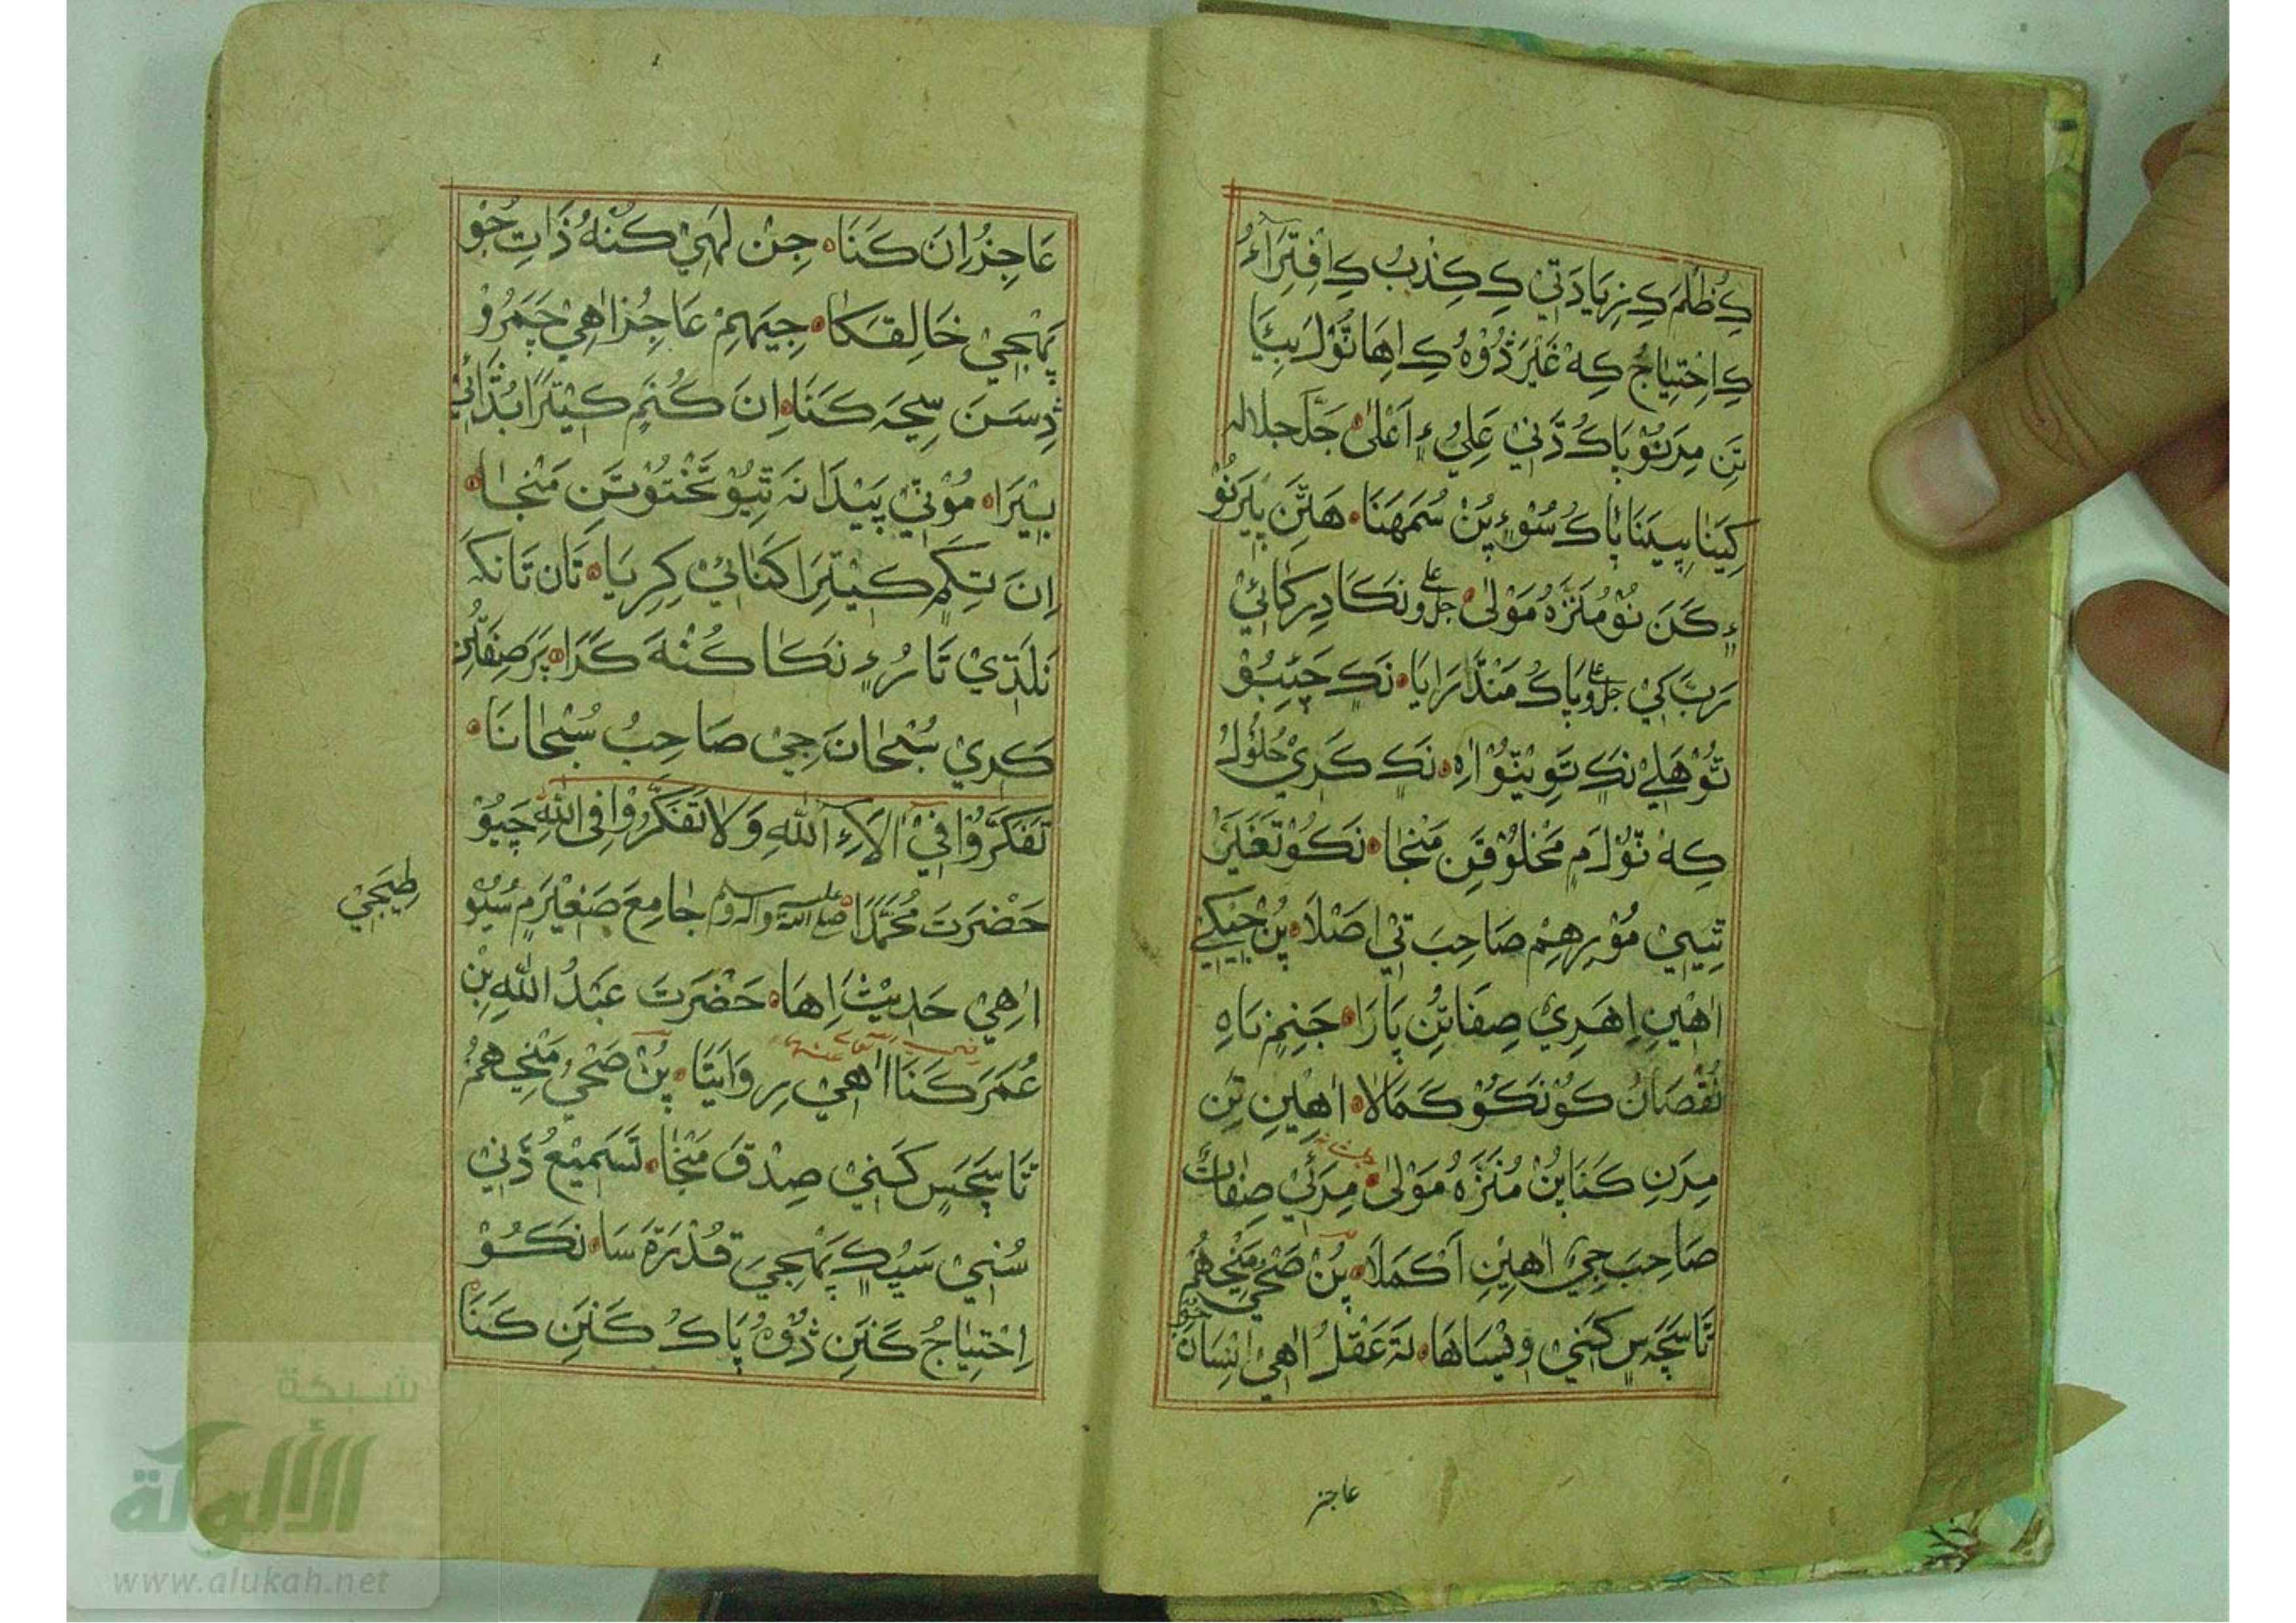 كِ ظُلمَ كِ زِيَادَتِيْ كِ كِذبُ كِ اِفْتِرَآءُ
كِ اِحْتِيَاجُ كِهْ غَيْرَ ڎُوْهُ كِ اِهَا ٿُوْلَ بِيَا
تَنِ مِرَنُوْ پَاكُ ڎَنِيْ عَلِيُ ءٍ اَعْلٰى جَلَّ جلاله
كِيَنَا پِيَنَا پَاكُ سُوْءٍ پُنْ سُمَهَنَا هَتَنِ پيرَنُوْ
ءٍ كَنَ نُوْ مُنَزَّهُ مَوْلٰى جل وعلي نَكَا دِرِكَائِيْ
رَبَّ كَيْ جل وعلي پَاكُ مَنْڎَارَايَا نَكٍ چَئِبُوْ
تُوْ هَلِيْ نَكٍ تَوِيْنُوْ اٰهِ نَكٍ كَرِيْ حُلُوْلُ
كِهْ ٿُوْلَ مٍ مَخْلُوْقَنِ مَنْجَا نَكُوْ تَغَيَّرَ
تِيْيِيْ مُوْرِهِمْ صَاحِبَ تِيْ اَصْلَا پُنْ جِيْكِيْ
اٰهِيْنِ اِهَرِيْ صِفَاتُنِ پَارَا جَنِمٍ نَاهِ
نُقْصَانُ كُوْ نَكُوْ كَمَالَا اٰهِيْنِ تِنِ
مِرَنِ كَنَا پُنْ مُنَزَّهُ مَوْلٰى مِرَئِيْ صِفَاتُ
صَاحِبَ جِيْ اٰهِيْنِ اَكْمَلَا پُنْ صَحِيْ مَنْجِهُمُ
تَا سَچَسٍ كَنِيْ وِيْسَاهَا نَہ عَقْلُ اٰهِيْ اِنْسَانَ جو
عاجز
عَاجِزُ اِنَ كَنَا جِنْ لَهَيْ كُنْهُ ذَاتِ جُوْ
پَهْجِيْ خَالِقَكَا جِيَهِمْ عَاجِزُ اٰهِيْ چَمَرُوْ
ڎِسَنَ سِجَہ كَنَا اِنَ كُنَمٍ كِيْتَرَا بُڎَائِيْ
بِيْرَا مُوْنِيْ پَيْدَا نَہ تِيُوْ تَحْتُوْ تَنِ مَنْجَا
اِنَ تِكَمٍ كِيْتِرَا كَنَائِيْ كِرِيَا تَان تَانكَہ
نَلَڌِيْ تَارُءٍ نَكَا كُنْهَ كَرَا پَرَ صِفَاتُنِ
كَرِيْ سُبْحَانَ جِيْ صَاحِبُ سُبْحَانَا
تَفَكَّرُوْا فِيْ اٰلَآءِ اللّٰهِ وَلَا تَفَكَّرُوْا فِى اللّٰهِ چَيُوْ
حَضْرَتَ مُحَمَّدًا صلى الله عليه واله وسلم جَامِعَ صَغِيْرَ مٍ سُيُوْطِيَجِيْ
اٰهِيْ حَدِيْثَ اِهَا حَضْرَتَ عَبْدُ اللّٰهِ بِنْ
عُمَرَ كَنَا رضي الله تعالى عنهما اٰهِيْ رِوَايَتَا پُنْ صَحِيْ مَنْجِهُمُ
تَا سَچَسٍ كَنِيْ صِدْقَ مَنْجَا تَسَمِيْعُ ڎَنِيْ
سُنِيْ سَيْكٍ پَهْجِيَ قُدْرَةَ سَا نَكُوْ
اِحْتِيَاجُ كَنَنِ ڎُوْهُ پَاكُ كَنَنِ كَنَا
شبكة
الألوكة
www.alukah.net